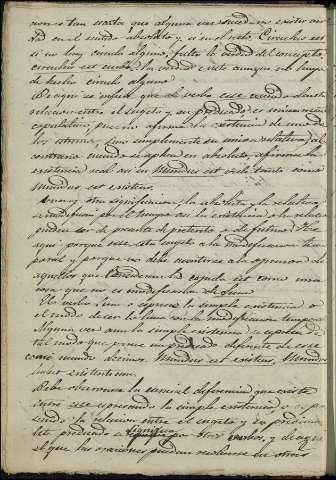 cion es tan exacta que alguna vez sucede no existir verdad
en el modo absoluto y si en el relativo Circulus est
si no hay circulo alguno, falta la verdad del concepto
circulus est curvus la verdad existe aunque no haya
de hecho circulo alguno.
De aqui se infiere que el verbo esse cuando denota
relacion entre el sugeto y su predicado es meramente
copulativo, pues no afirma la existencia de uno de
los terminos, sino simplemente su union relativa; al
contrario cuando se aplica en absoluto, afirma la
existencia real asi es Mundus est vale tanto como
Mundus est existens.
una y otra significacion, la absoluta y la relativa
se modifican por el tiempo asi la existencia o la relacion
pueden ser de presente de preterito o de futuro. He
aqui porque esse esta sugeto a la modificacion tem
poral y porque no debe admitirse la opinion de
aquellos que la
cosa que no es modificacion de
El verbo, tiene o expresa la simple existencia o
el modo de ser la cosa con la modificacion tempo
Alguna vez aun la simple existencia se expresa de
tal modo que parece un predicado distinto de esse
como cuando decimos Mundus est existens, Mundus
habet existentiam.
Debe observarse la esencial diferencia que existe
entre esse expresando la simple existencia, o expre
sando la relacion entre el sugeto y su predicado
Este predicado se significa por otros verbos, y de aqui
el que las oraciones puedan resolverse en otras